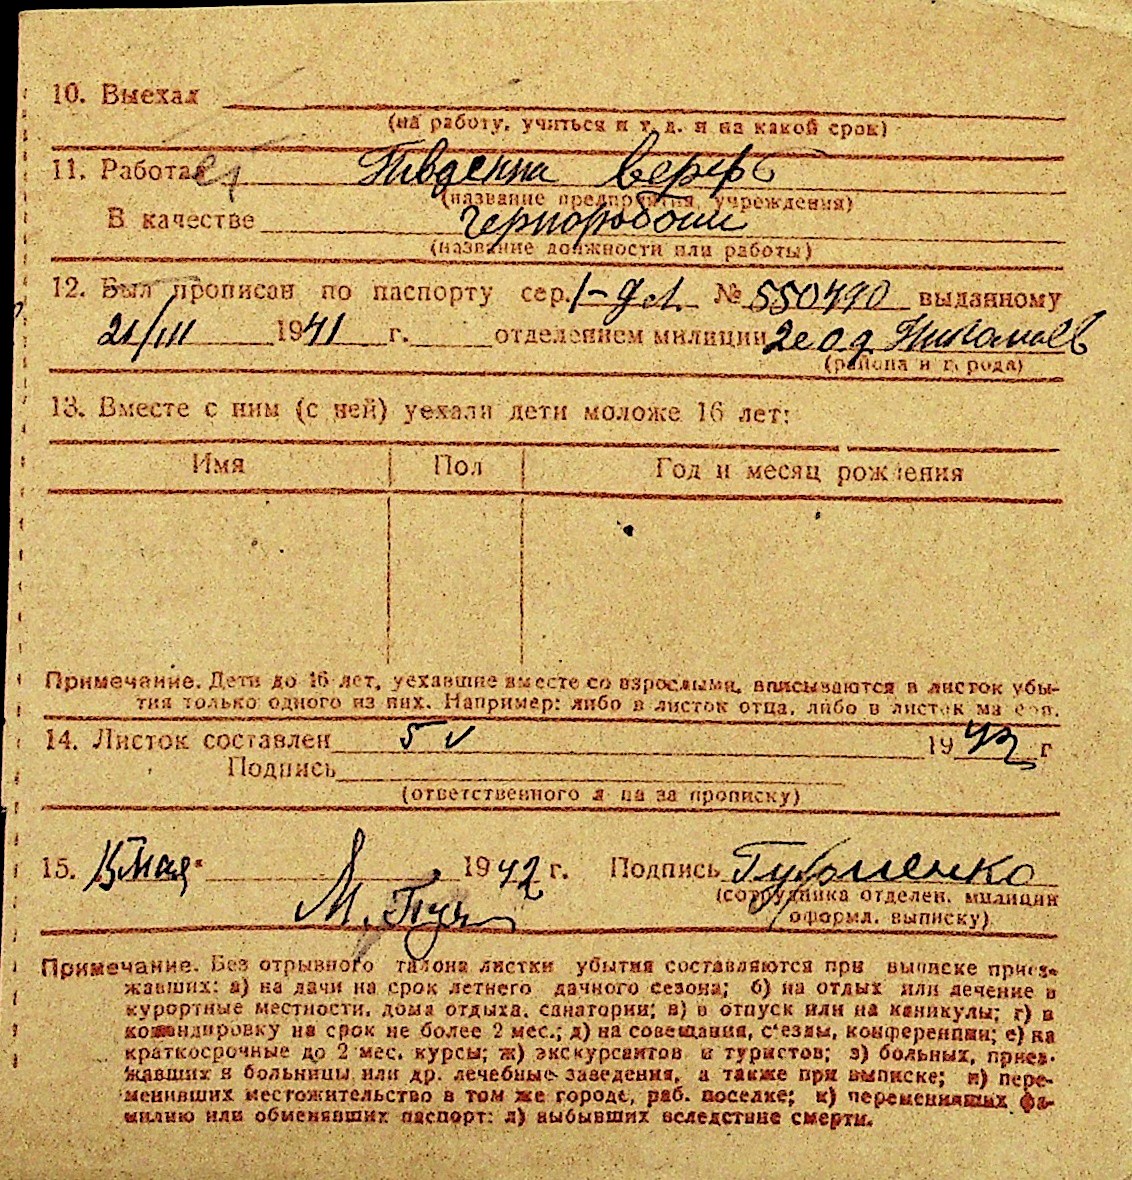 10. Выехал
(на работу, учиться и т. д. и на какой срок)
11. Работает Південна верфь
(название предприятия, учреждения)
В качестве чернорабочий
(название должности или работы)
12. Был прописан по паспорту сер. № 550490 выданному
21/III 1941 г. отделением милиции Николаев
(района и города)
13. Вместе с ним (с ней) уехали дети моложе 16 лет:
Имя Пол Год и месяц рождения
Примечание. Дети до 16 лет, уехавшие вместе со взрослыми, вписываются в листок убы-
тия только одного из них. Например: либо в листок отца, либо в листок матери.
14. Листок составлен 5 V 1942 г
Подпись
(ответственного лица за прописку)
15. Мая 1942 г. Подпись
(сотрудника отделен. милиции
оформл. выписку)
Примечание. Без отрывного талона листки убытия составляются при выписке приез-
жавших: а) на дачи на срок летнего дачного сезона; б) на отдых или лечение в
курортные местности, дома отдыха, санатории; в) в отпуск или на каникулы; г) в
командировку на срок не более 2 мес.; д) на совещания, с'езды, конференции; е) на
краткосрочные до 2 мес. курсы; ж) экскурсантов и туристов; з) больных, приез-
жавших в больницы или др. лечебные заведения, а также при выписке; и) пере-
менивших местожительство в том же городе, раб. поселке; к) переменивших фа-
милию или обменявших паспорт: л) выбывших вследствие смерти.